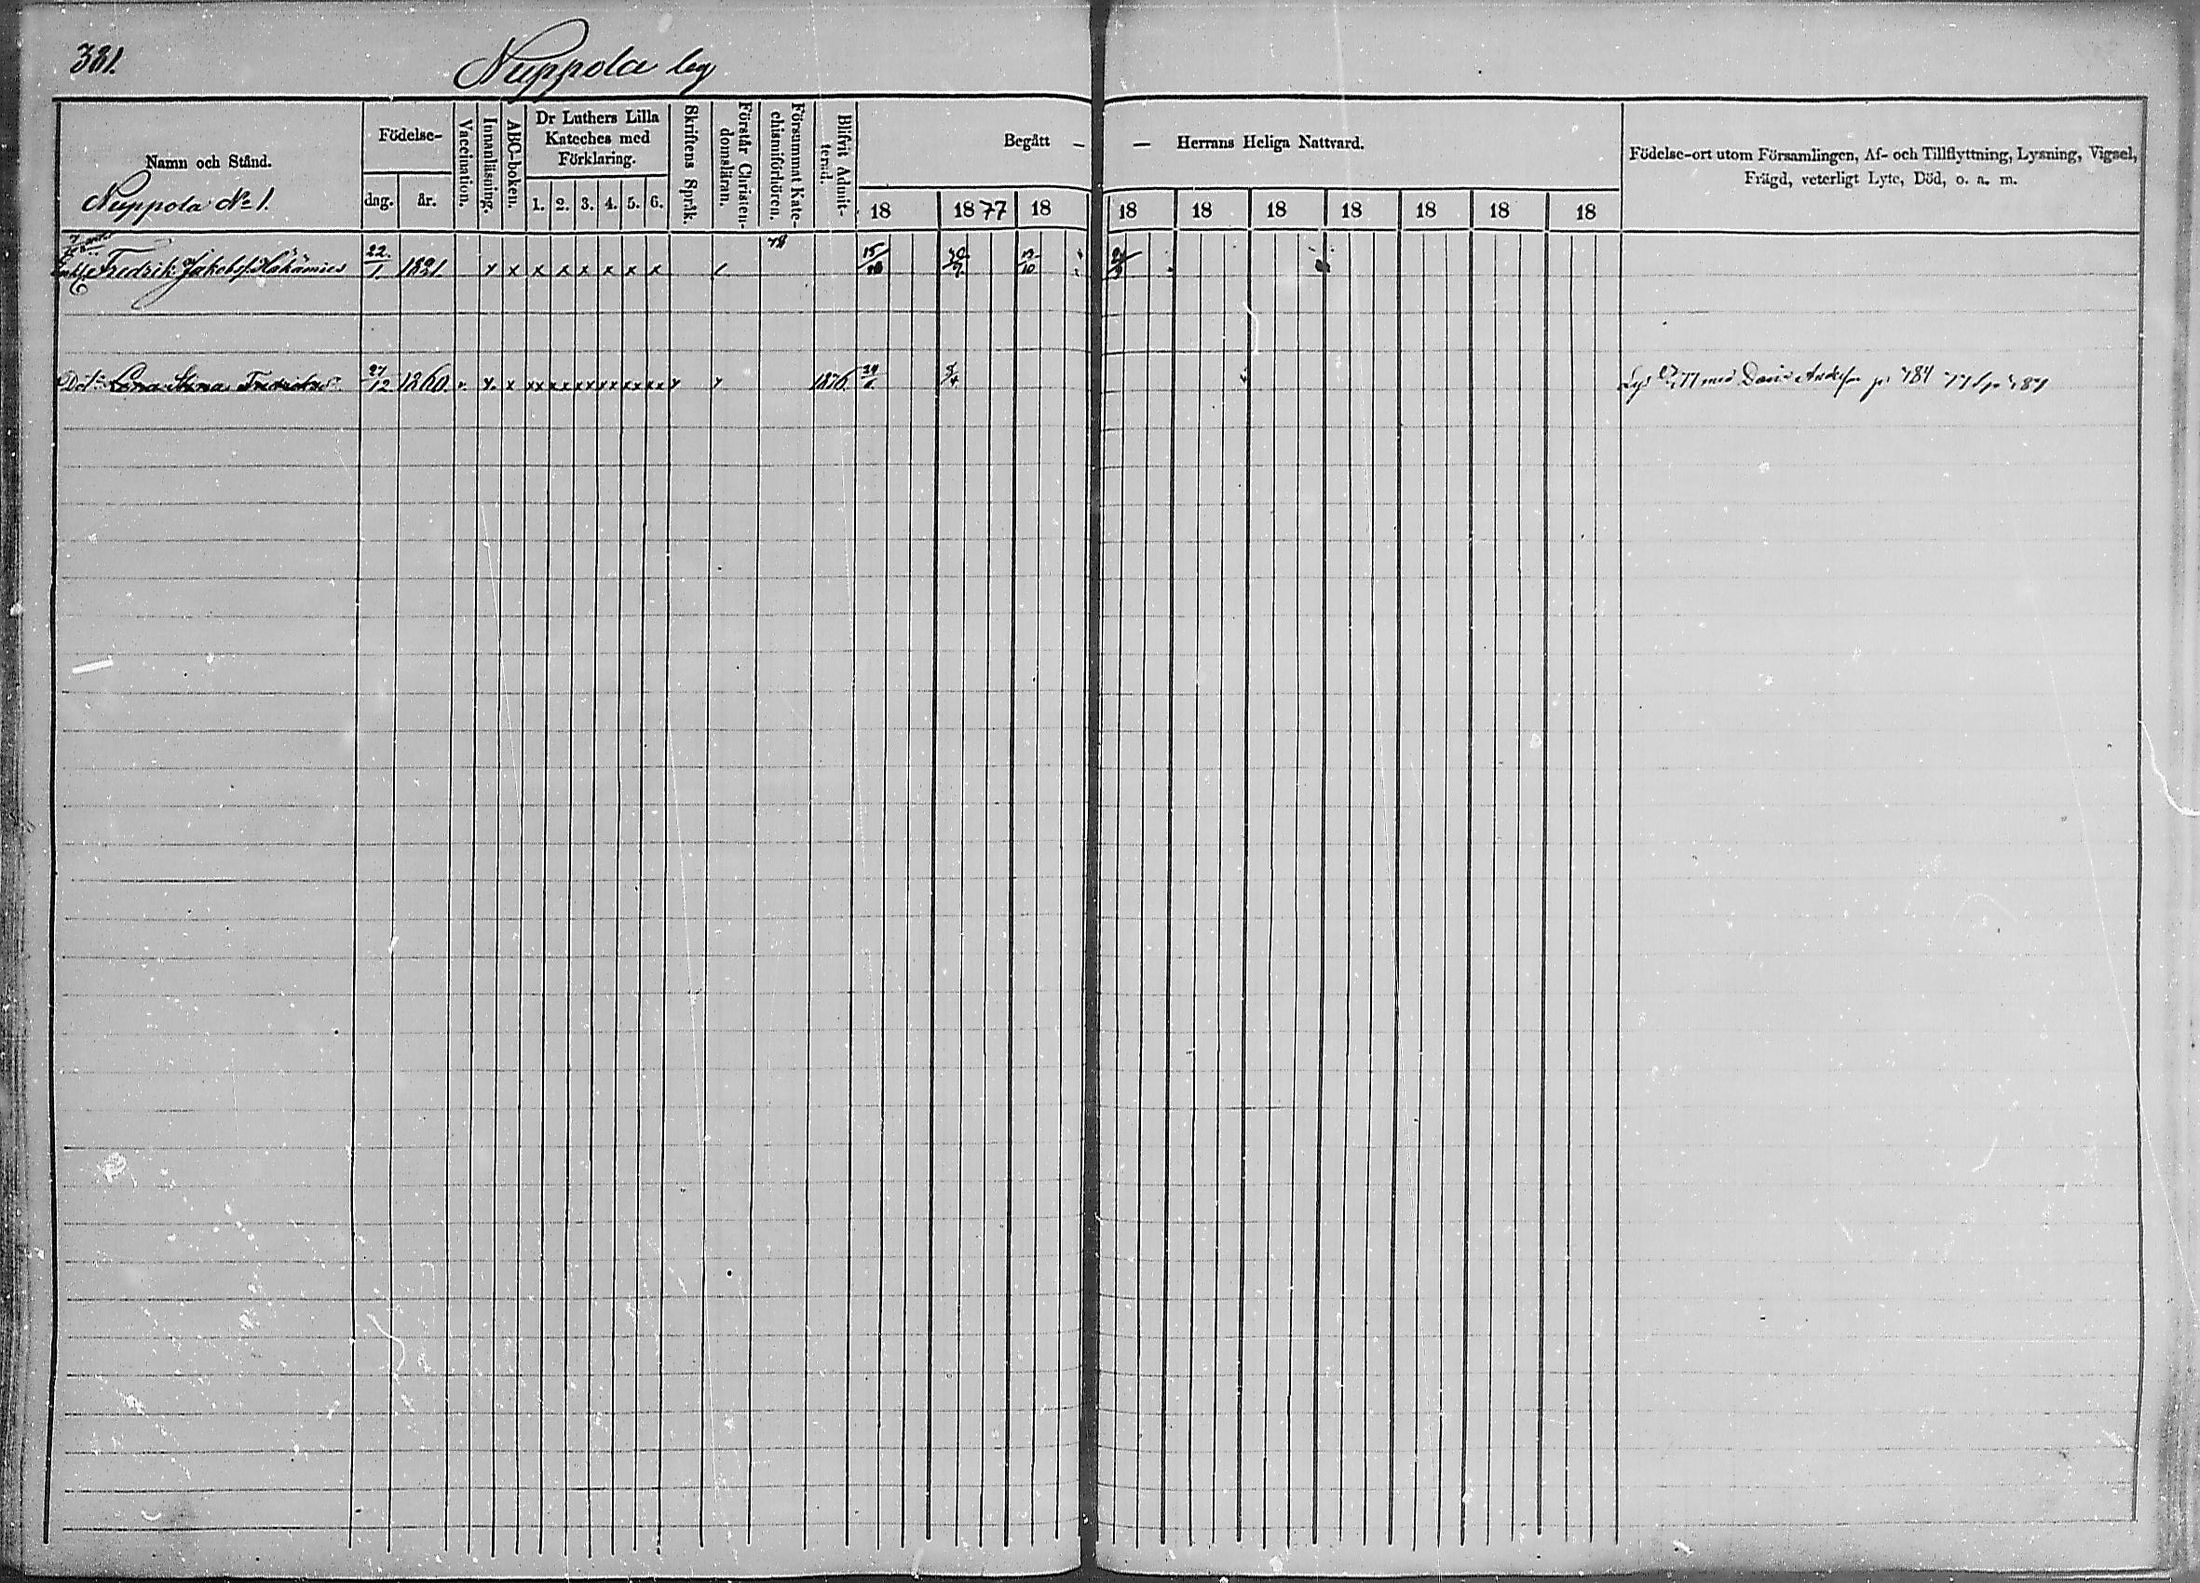 381.
Nuppola by
Namn och Stånd.
Födelse-
dag.
år.
Vaccination.
Innanläsning.
ABC-boken.
Dr Luthers Lilla
Kateches med
Förklaring.
1. 2. 3. 4. 5. 6.
Skriftens Språk.
Förstår Christen-
domsläran.
Försummat Kate-
chismiförhören.
Blifvit Admit-
terad.
Begått — — Herrans Heliga Nattvard.
18 18 77 18 18 18 18 18 18 18 18
Födelse-ort utom Församlingen, Af- och Tillflyttning, Lysning, Vigsel,
Frägd, veterligt Lyte, Död, o. a. m.
Nuppola No 1.
78
Fredrik Jakobss. 22/1 1821 x x x x x x x x 15/10 13/10
Dot. Lena Stina Fredriksd. 27/12 1860 x x xx xx xx xx xx xx 1876 5/4 Lys 77 med p. 484